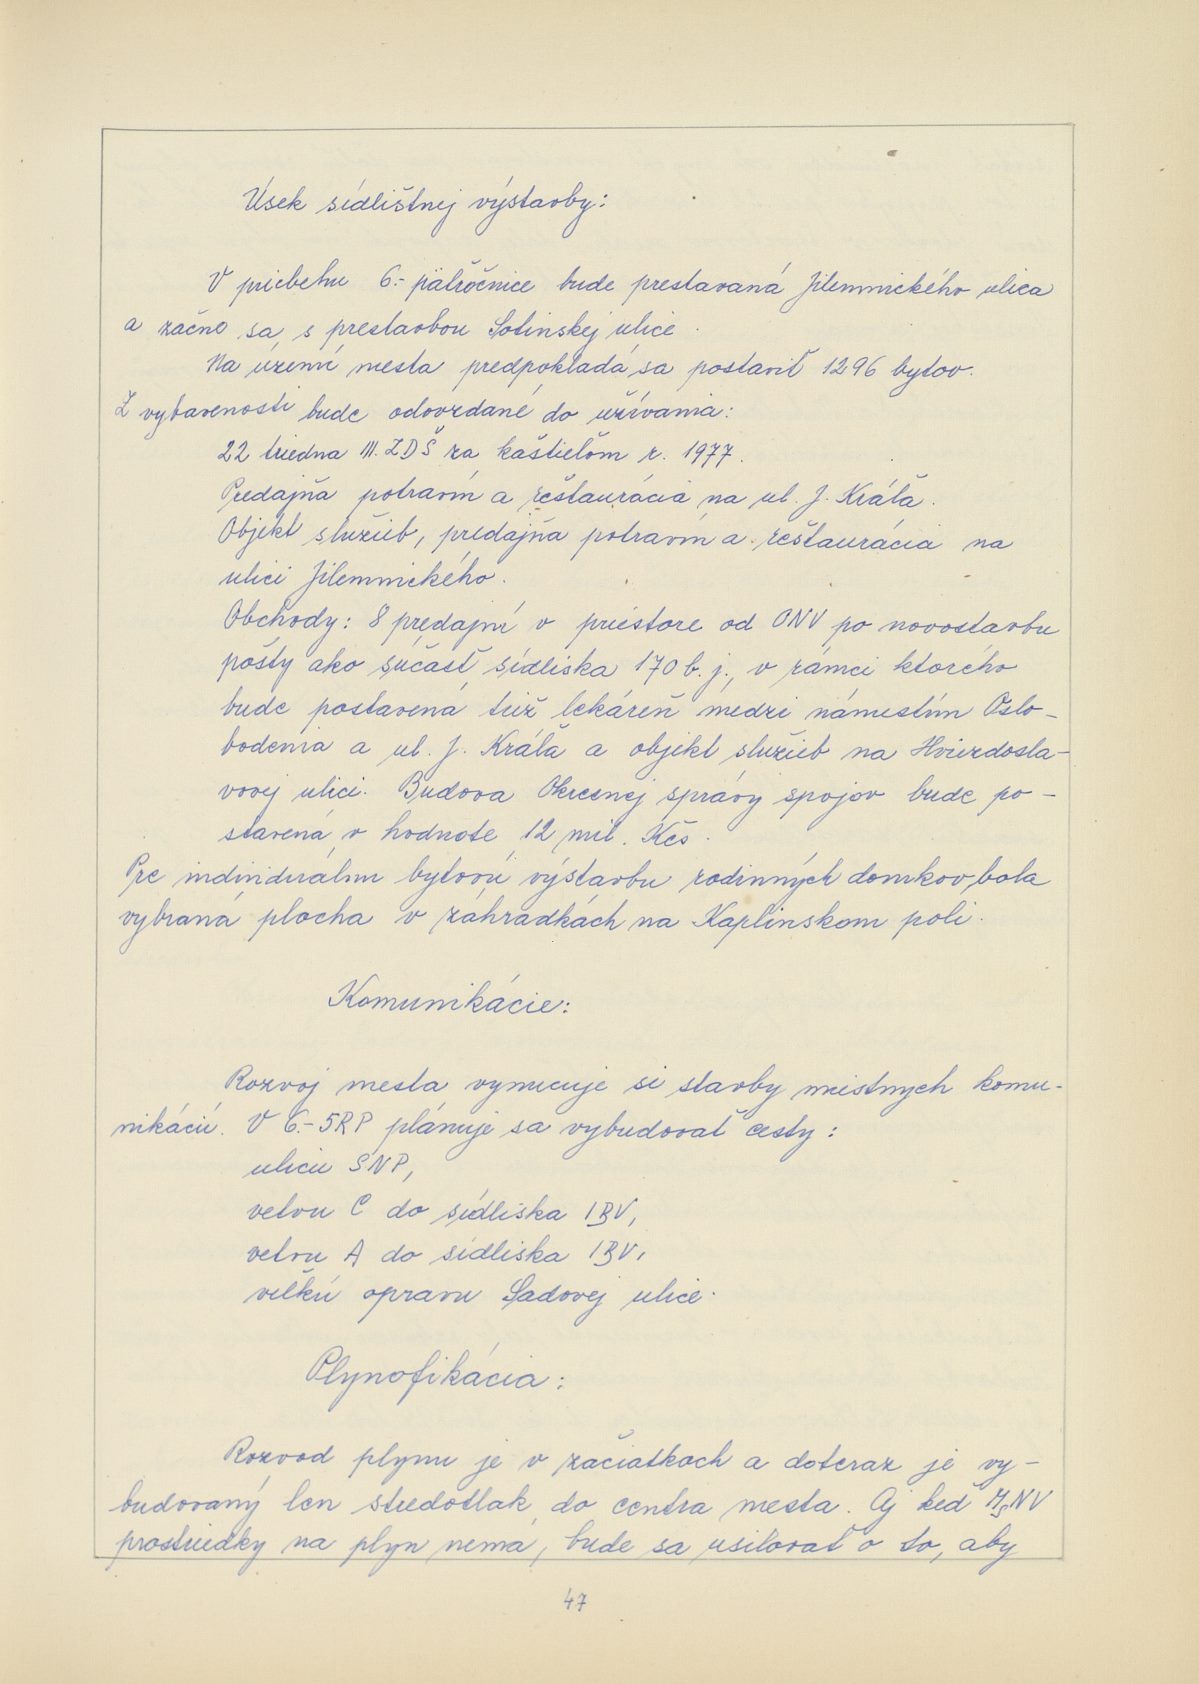 Úsek sídlištnej výstavby:
V priebehu 6.- päťročnice bude prestavaná Jilemnického ulica
a začne sa s prestavbou Sotinskej ulice.
Na území mesta predpokladá sa postaviť 1296 bytov.
Z vybavenosti bude odovzdané do užívania:
22 triedna III. ZDŠ za kaštieľom r. 1977.
Predajňa potravín a reštaurácia na ul. J. Kráľa.
Objekt služieb, predajňa potravín a reštaurácia na
ulici Jilemnického.
Obchody: 8 predajní v priestore od ONV po novostavbu
pošty ako súčasť sídliska 170 b. j., v rámci ktorého
bude postavená tiež lekáreň medzi námestím Oslo-
bodenia a ul. J. Kráľa a objekt služieb na Hviezdosla-
vovej ulici. Budova Okresnej správy spojov bude po-
stavená v hodnote 12 mil. Kčs.
Pre individuálnu bytovú výstavbu rodinných domkov bola
vybraná plocha v záhradkách na Kaplinskom poli.
Komunikácie:
Rozvoj mesta vynucuje si stavby miestnych komu-
nikácií. V 6.-5RP plánuje sa vybudovať cesty:
ulicu SNP,
vetvu C do sídliska IBV,
vetvu A do sídliska IBV,
veľkú opravu Sadovej ulice.
Plynofikácia:
Rozvod plynu je v začiatkoch a doteraz je vy-
budovaný len stredotlak do centra mesta. Aj keď MsNV
prostriedky na plyn nemá, bude sa usilovať o to, aby
47